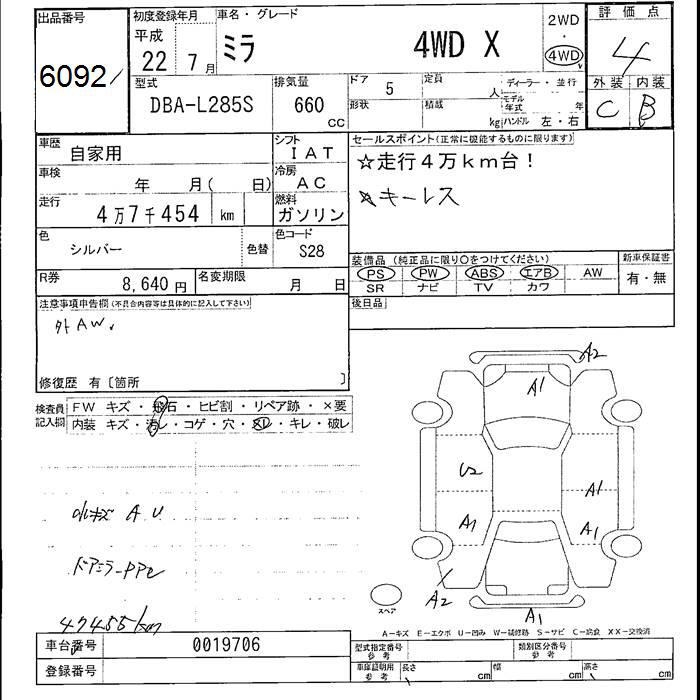 出品番号 初度登録年月 車名・グレード 2WD 評価点
6092 平成 22 7月 ミラ 4WD X ・ 4WD 4
型式 排気量 ドア 5 定員 人 ディーラー・並行 外装 内装
DBA-L285S 660 CC 形状 積載 kg モデル年式 年 ハンドル 左・右 C B
車歴 自家用 シフト IAT セールスポイント(正常に機能するものに限ります)
車検 年 月( 日) 冷房 AC ☆走行4万km台!
走行 4万7千454 km 燃料 ガソリン ☆キーレス
色 シルバー 色替 色コード S28
装備品 (純正品に限り○をつけてください) 新車保証書
R券 8,640円 名変期限 月 日 PS PW ABS エアB AW 有・無
SR ナビ TV カワ
注意事項申告欄(不具合内容等は具体的に記入して下さい) 後日品
外AW.
修復歴 有〔箇所 〕
検査員記入欄 FW キズ・飛石・ヒビ割・リペア跡・×要
内装 キズ・汚レ・コゲ・穴・スレ・キレ・破レ
A2
A1
U2
A1
A1 A1
小キズ A U
ドアミラーPPe
A2 A1
スペア
47455km
A-キズ E-エクボ U-凹み W-補修跡 S-サビ C-腐食 XX-交換済
車台番号 0019706 型式指定番号 参考 類別区分番号 参考
登録番号 車庫証明用 参考 長さ cm 幅 cm 高さ cm